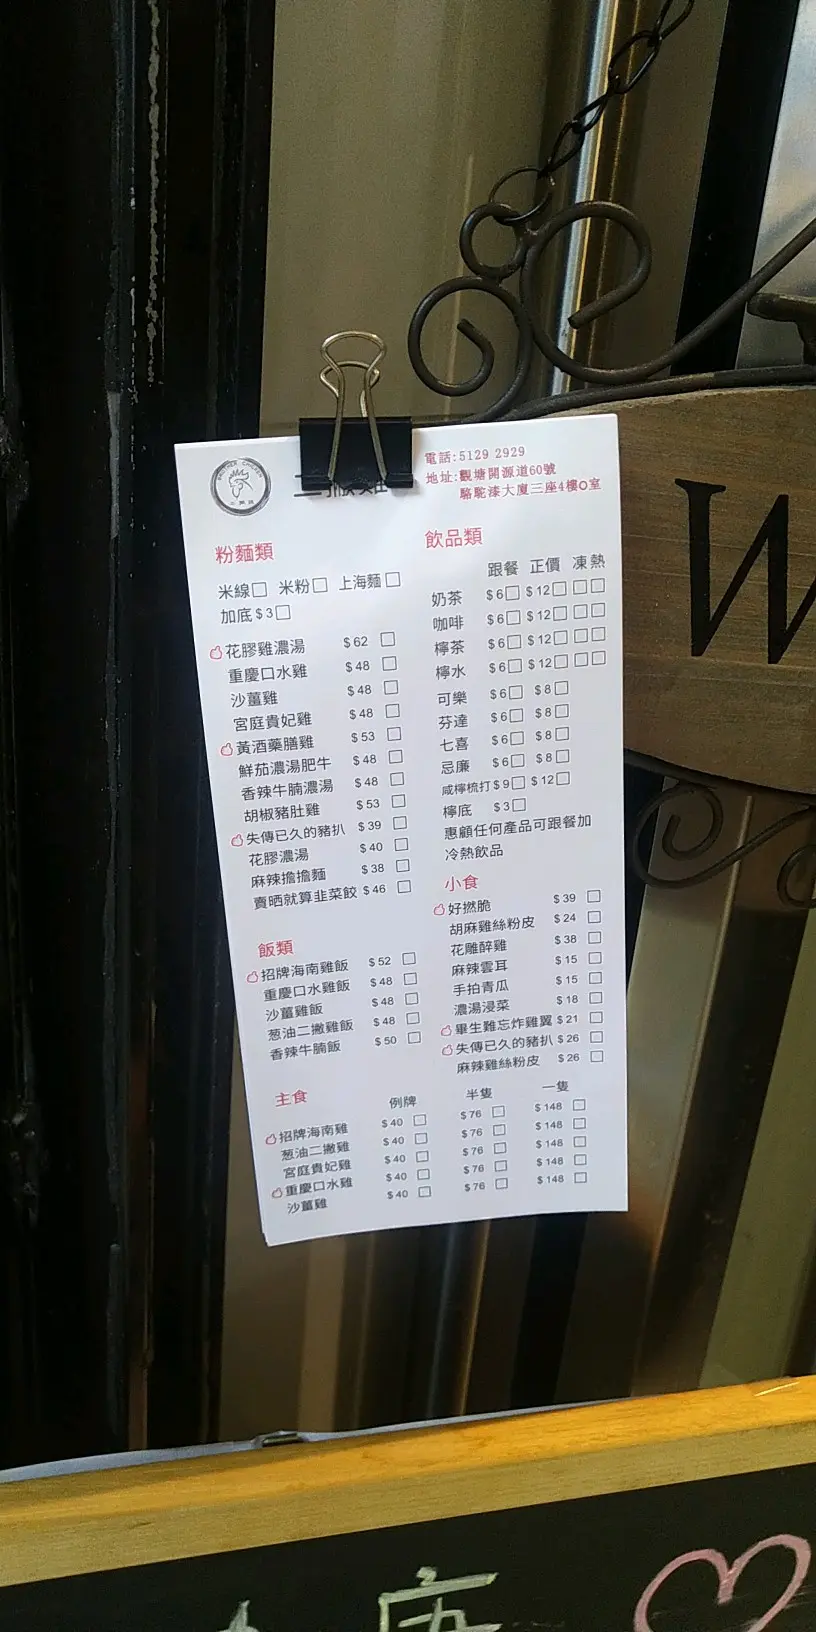 BROTHER CHICKEN
電話:5129 2929
地址:觀塘開源道60號
駱駝漆大廈三座4樓O室
粉麵類
米線□ 米粉□ 上海麵□
加底$3□
花膠雞濃湯 $62 □
重慶口水雞 $48 □
沙薑雞 $48 □
宮庭貴妃雞 $48 □
黃酒藥膳雞 $53 □
鮮茄濃湯肥牛 $48 □
香辣牛腩濃湯 $48 □
胡椒豬肚雞 $53 □
失傳已久的豬扒 $39 □
花膠濃湯 $40 □
麻辣擔擔麵 $38 □
賣晒就算韭菜餃 $46 □
飯類
招牌海南雞飯 $52 □
重慶口水雞飯 $48 □
沙薑雞飯 $48 □
葱油二撇雞飯 $48 □
香辣牛腩飯 $50 □
飲品類
跟餐 正價 凍 熱
奶茶 $6□ $12□ □□
咖啡 $6□ $12□ □□
檸茶 $6□ $12□ □□
檸水 $6□ $12□ □□
可樂 $6□ $8□
芬達 $6□ $8□
七喜 $6□ $8□
忌廉 $6□ $8□
咸檸梳打 $9□ $12□
檸底 $3□
惠顧任何產品可跟餐加
冷熱飲品
小食
好撚脆 $39 □
胡麻雞絲粉皮 $24 □
花雕醉雞 $38 □
麻辣雲耳 $15 □
手拍青瓜 $15 □
濃湯浸菜 $18 □
畢生難忘炸雞翼 $21 □
失傳已久的豬扒 $26 □
麻辣雞絲粉皮 $26 □
主食 例牌 半隻 一隻
招牌海南雞 $40 □ $76 □ $148 □
葱油二撇雞 $40 □ $76 □ $148 □
宮庭貴妃雞 $40 □ $76 □ $148 □
重慶口水雞 $40 □ $76 □ $148 □
沙薑雞 $40 □ $76 □ $148 □
W